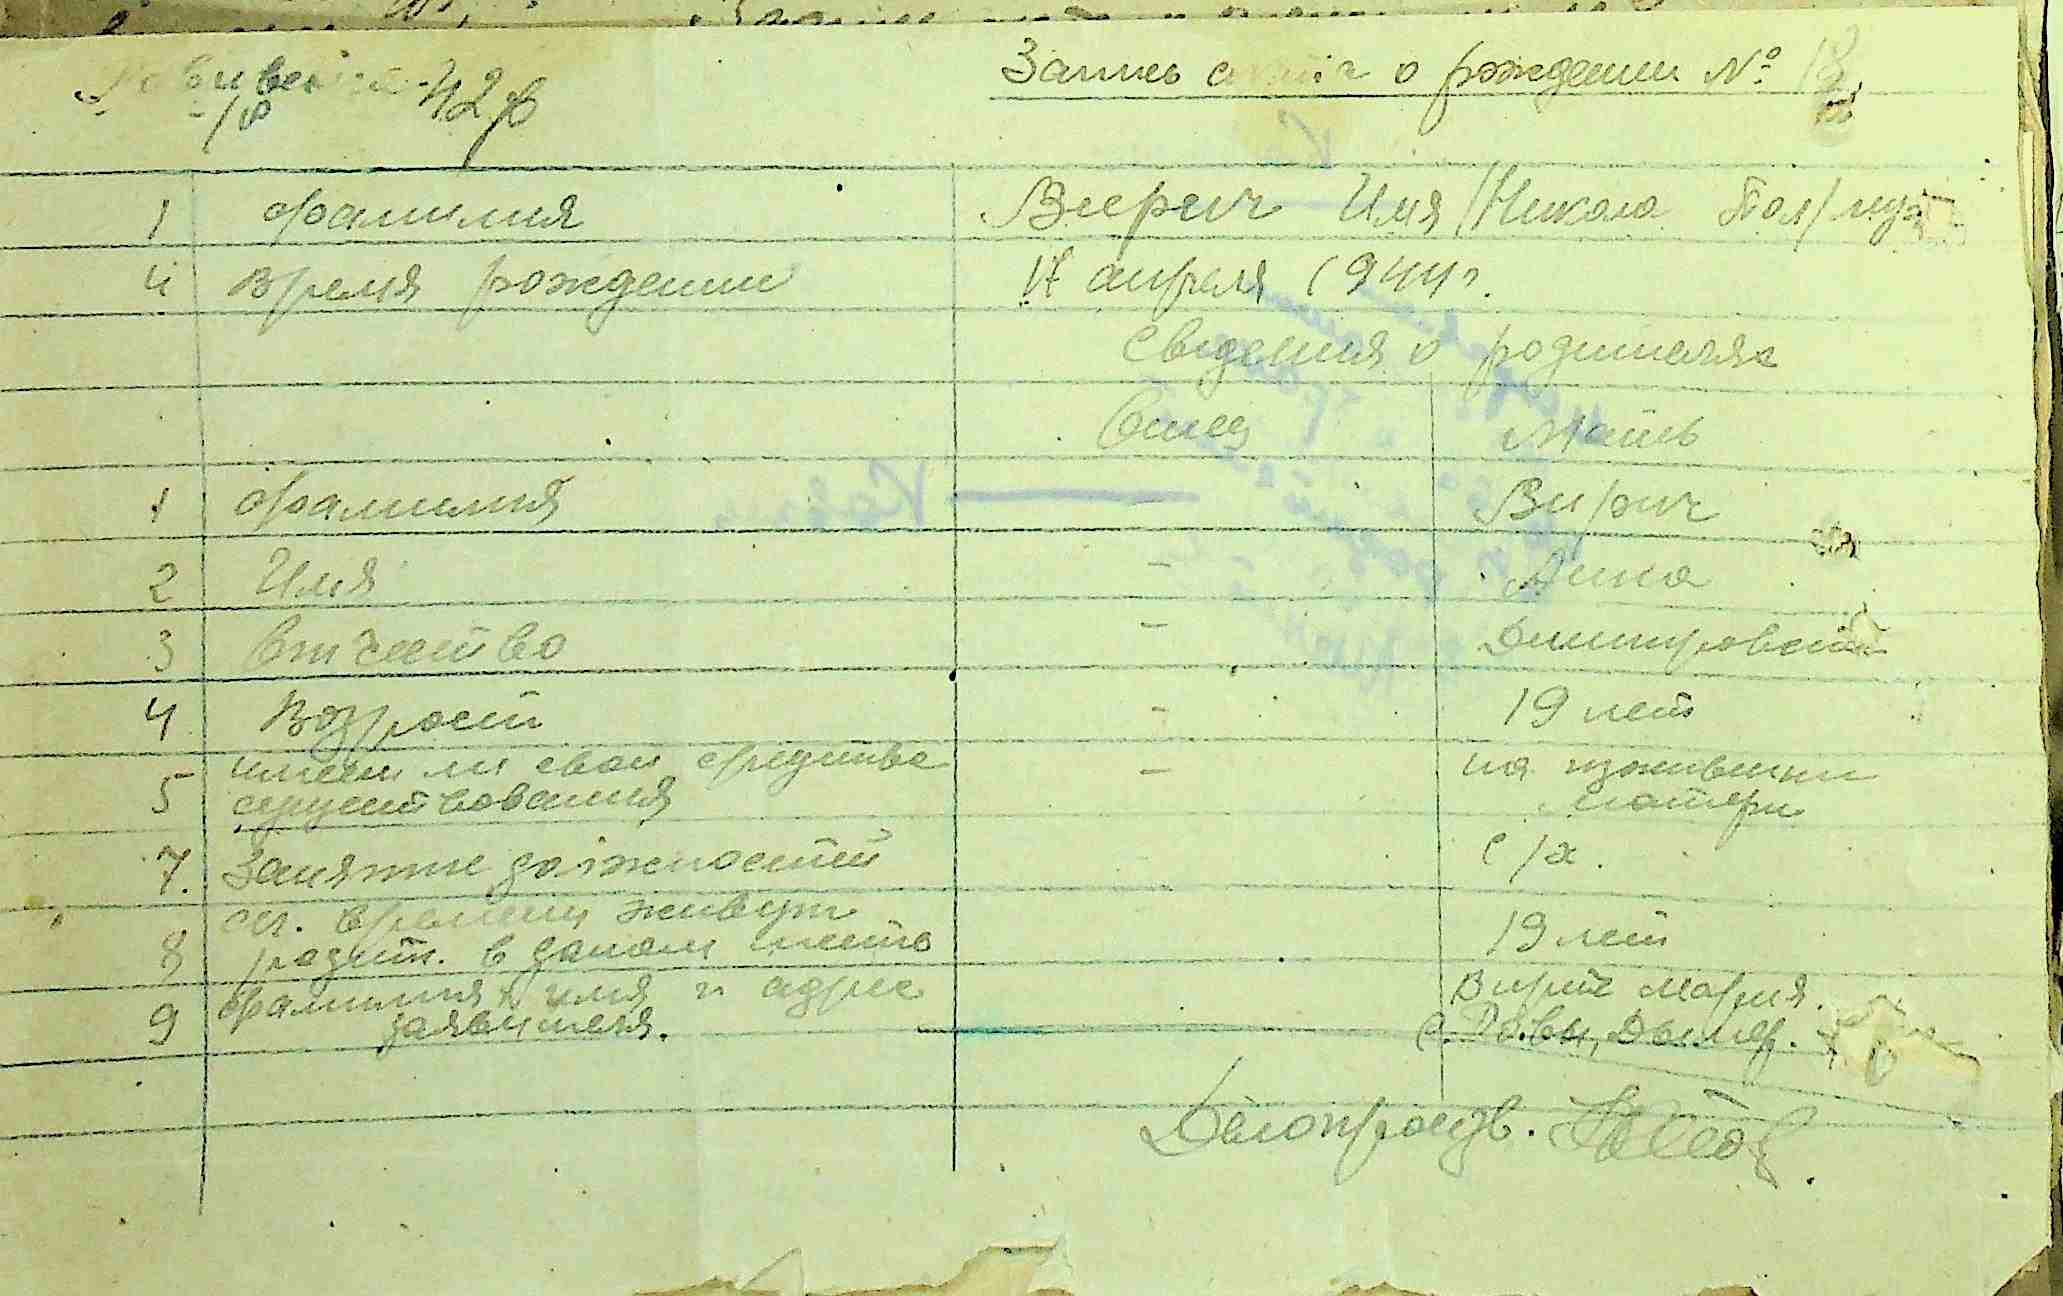 42 ф
Запись о рождении №
1 Фамилия Вирич Имя/Никола Пол/муж
4 время рождении 17 апреля 1944 г.
Сведения о родителях
Отец Мать
1 Фамилия – Вирич
2 Имя – Анна
3 Отчество – Димитровена
4 Возраст – 19 лет
5 имеет ли свои средства – на иждивении
существования матери
7. Занятие должностей с/х.
ск. времени живут
8 родит. в даном место 19 лет
9 фамилия имя и адрес Вирич Мария.
заявителя.
Делопроизв.